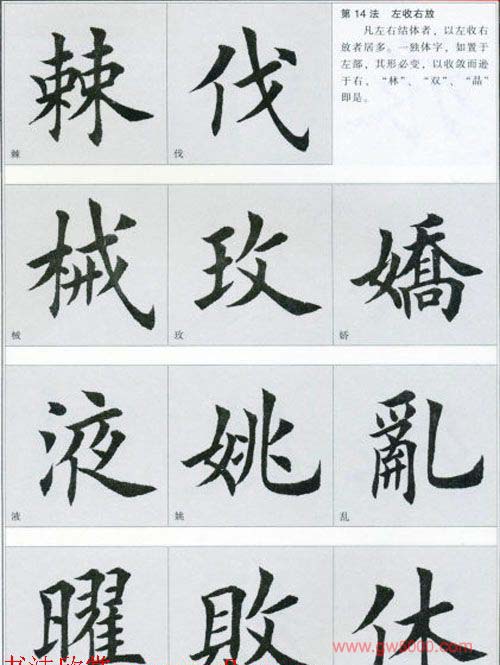 第14法 左收右放
凡左右结体者，以左收右
放者居多。一独体字，如置于
左部，其形必变，以收敛而逊
于右，“林”、“双”、“晶”
即是。
棘 伐
棘 伐
械 玫 嬌
械 玫 娇
液 姚 亂
液 姚 乱
曜 敗 休
www.gw5000.com
书法欣赏